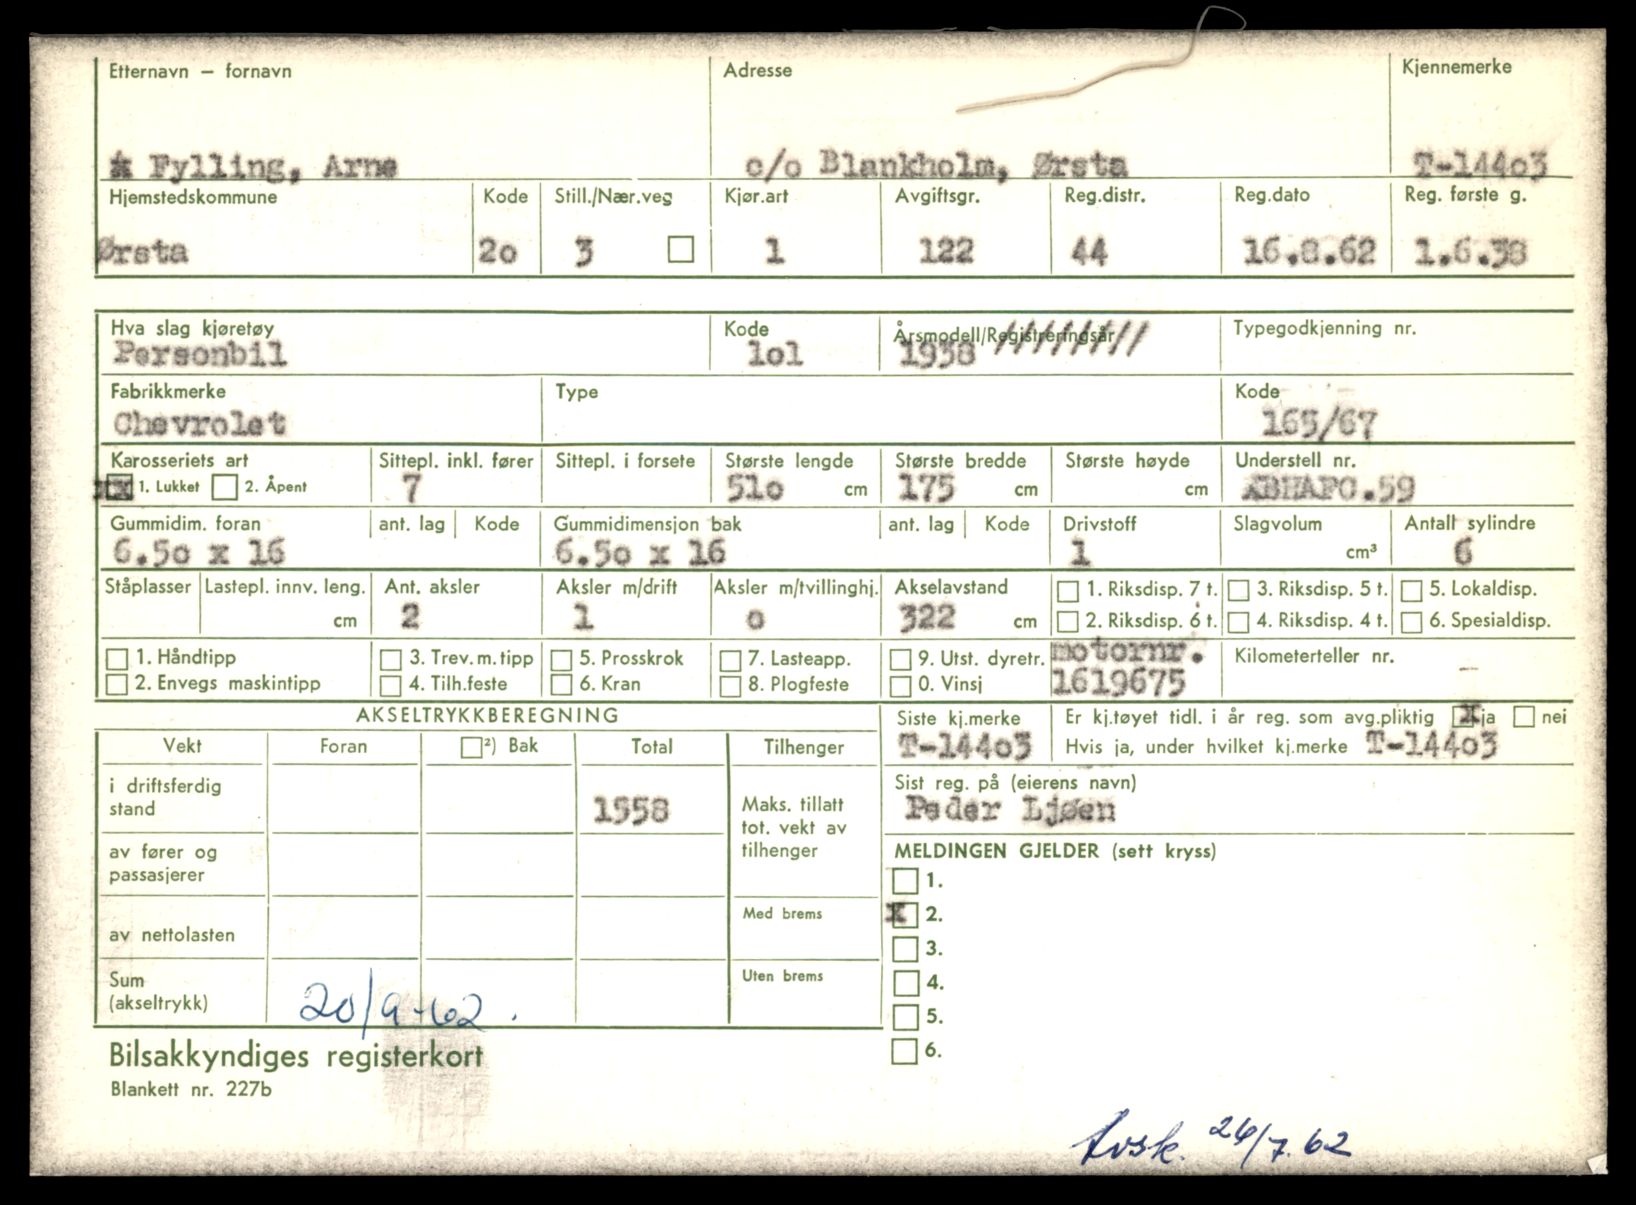 Etternavn – fornavn Adresse Kjennemerke
Fylling, Arne c/o Blankholm, Ørsta T-14403
Hjemstedskommune Kode Still./Nær.veg Kjør.art Avgiftsgr. Reg.distr. Reg.dato Reg. første g.
Ørsta 2o 3 1 122 44 16.8.62 1.6.38
Hva slag kjøretøy Kode Årsmodell/Registreringsår Typegodkjenning nr.
Personbil lol 1938 /////////
Fabrikkmerke Type Kode
Chevrolet 165/67
Karosseriets art Sittepl. inkl. fører Sittepl. i forsete Største lengde Største bredde Største høyde Understell nr.
x 1. Lukket 2. Åpent 7 51o cm 175 cm cm .59
Gummidim. foran ant. lag Kode Gummidimensjon bak ant. lag Kode Drivstoff Slagvolum Antall sylindre
6.5o x 16 6.5o x 16 1 cm³ 6
Ståplasser Lastepl. innv. leng. Ant. aksler Aksler m/drift Aksler m/tvillinghj. Akselavstand 1. Riksdisp. 7 t. 3. Riksdisp. 5 t. 5. Lokaldisp.
cm 2 1 o 322 cm 2. Riksdisp. 6 t. 4. Riksdisp. 4 t. 6. Spesialdisp.
1. Håndtipp 3. Trev.m.tipp 5. Prosskrok 7. Lasteapp. 9. Utst. dyretr. motornr. Kilometerteller nr.
2. Envegs maskintipp 4. Tilh.feste 6. Kran 8. Plogfeste 0. Vinsj 1619675
AKSELTRYKKBEREGNING Siste kj.merke Er kj.tøyet tidl. i år reg. som avg.pliktig x ja nei
Vekt Foran ²) Bak Total Tilhenger T-144o3 Hvis ja, under hvilket kj.merke T-144o3
i driftsferdig Sist reg. på (eierens navn)
stand 1558 Maks. tillatt Peder Ljøen
tot. vekt av
av fører og tilhenger MELDINGEN GJELDER (sett kryss)
passasjerer 1.
Med brems x 2.
av nettolasten 3.
Sum Uten brems 4.
(akseltrykk) 20/9-62. 5.
Bilsakkyndiges registerkort 6.
Blankett nr. 227b
Avsk. 26/7.62